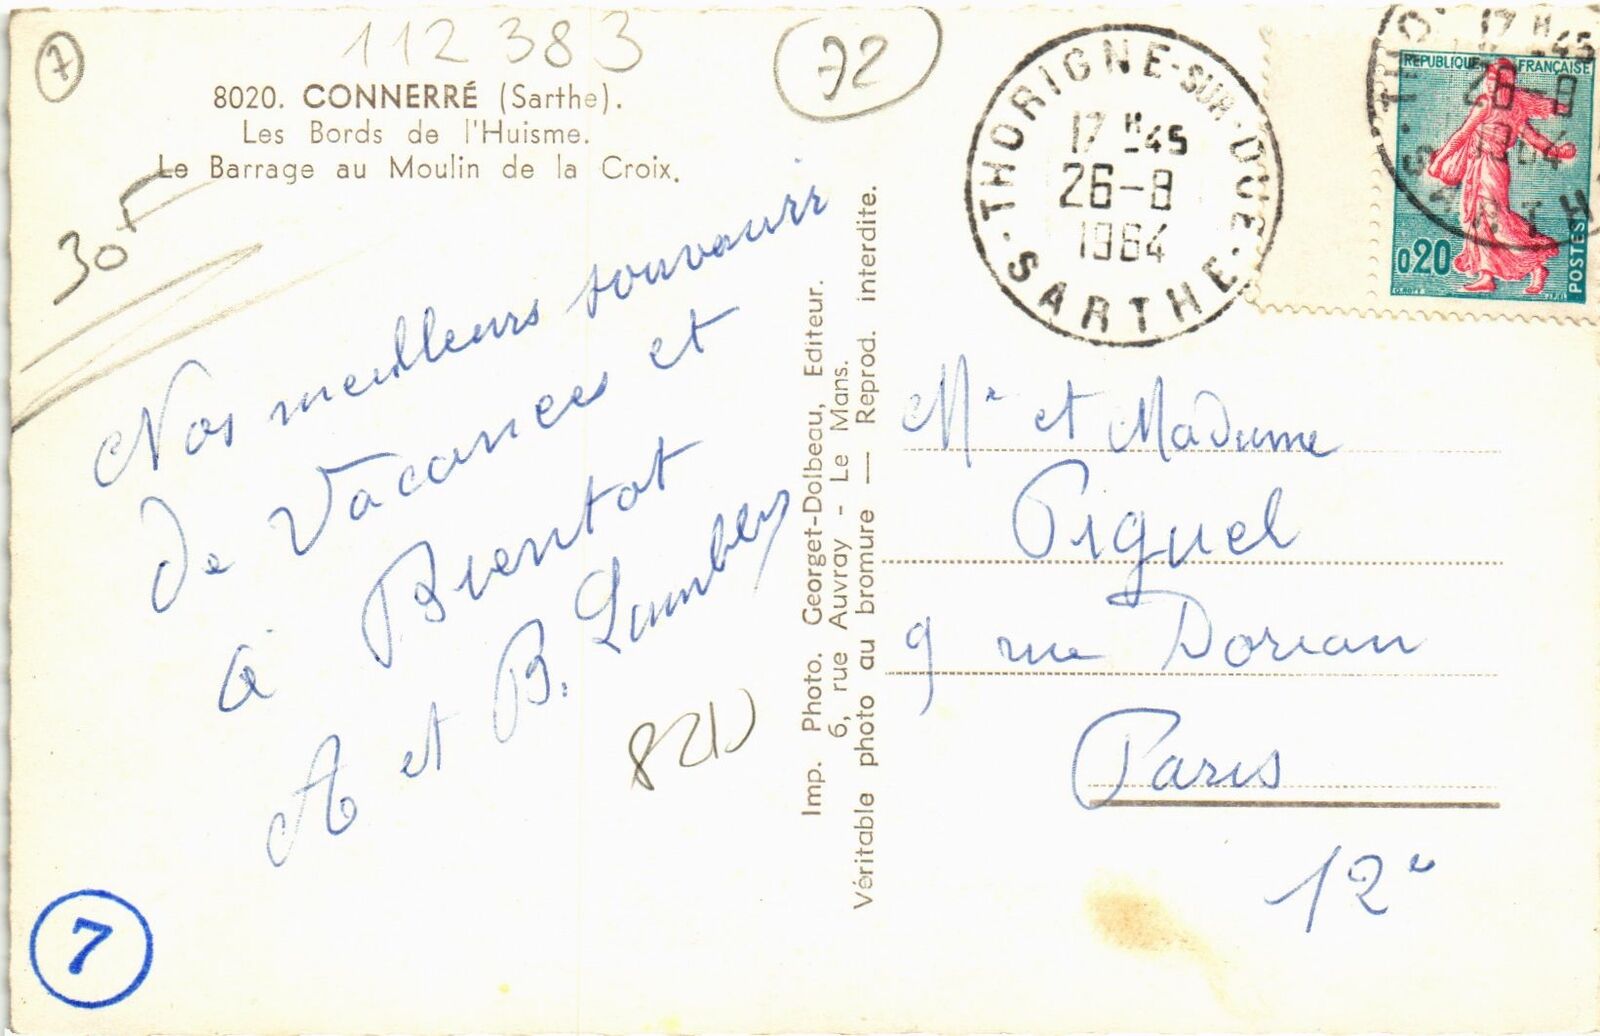 7
112 383
72
8020. CONNERRÉ (Sarthe).
Les Bords de l'Huisme.
Le Barrage au Moulin de la Croix.
30F
Nos meilleurs souvenir
de Vacances et
à Bientot
A et B.
8210
7
Imp. Photo. Georget-Dolbeau, Editeur.
6, rue Auvray - Le Mans.
Véritable photo au bromure — Reprod. interdite.
THORIGNE-SUR-DUE
17 H -45
26-8
1964
SARTHE
17 H -45
26-8
1964
SARTH
REPUBLIQUE FRANÇAISE
0,20
POSTES
Mr et Madame
Piguel
9 rue Dorian
Paris
12e